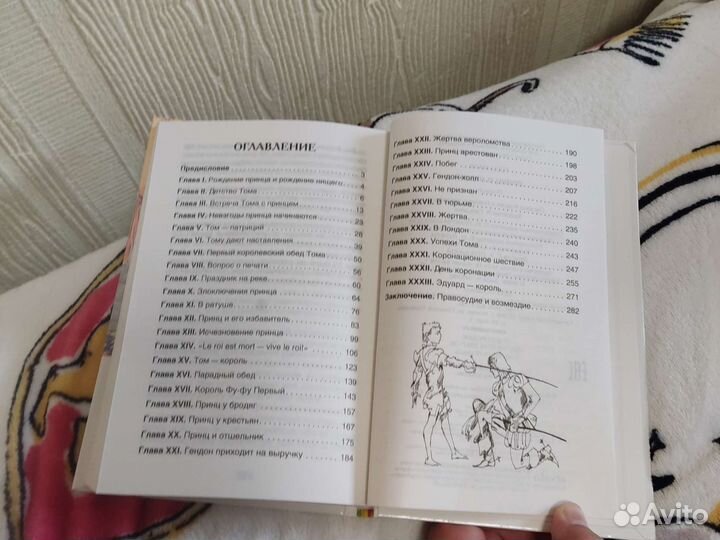 ОГЛАВЛЕНИЕ
Предисловие 3
Глава I. Рождение принца и рождение нищего 4
Глава II. Детство Тома 6
Глава III. Встреча Тома с принцем 13
Глава IV. Невзгоды принца начинаются 23
Глава V. Том — патриций 28
Глава VI. Тому дают наставления 39
Глава VII. Первый королевский обед Тома 50
Глава VIII. Вопрос о печати 56
Глава IX. Праздник на реке 60
Глава X. Злоключения принца 64
Глава XI. В ратуше 76
Глава XII. Принц и его избавитель 84
Глава XIII. Исчезновение принца 99
Глава XIV. «Le roi est mort — vive le roi!» 106
Глава XV. Том — король 123
Глава XVI. Парадный обед 139
Глава XVII. Король Фу-фу Первый 143
Глава XVIII. Принц у бродяг 157
Глава XIX. Принц у крестьян 167
Глава XX. Принц и отшельник 175
Глава XXI. Гендон приходит на выручку 184
Глава XXII. Жертва вероломства 190
Глава XXIII. Принц арестован 198
Глава XXIV. Побег 203
Глава XXV. Гендон-холл 207
Глава XXVI. Не признан 216
Глава XXVII. В тюрьме 222
Глава XXVIII. Жертва 235
Глава XXIX. В Лондон 240
Глава XXX. Успехи Тома 243
Глава XXXI. Коронационное шествие 247
Глава XXXII. День коронации 255
Глава XXXIII. Эдуард — король 271
Заключение. Правосудие и возмездие 282
Avito